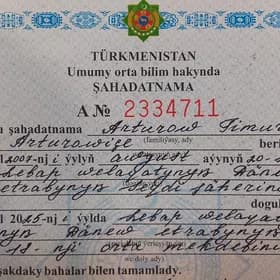 TÜRKMENISTAN
Umumy orta bilim hakynda
ŞAHADATNAMA
A № 2334711
şahadatnama Arturow Timur
Arturowiçe (familiýasy, ady beri
2007-nji ýylyň awgust aýynyň 20-
Lebap welaýatynyň Dänew
etrabynyň Seýdi şäherin
dogul
2025-nji ýylda Lebap welaýa
nyň Dänew etrabynyň
18-nji orta mekdebin
we doly ady)
şakdaky bahalar bilen tamamlady.